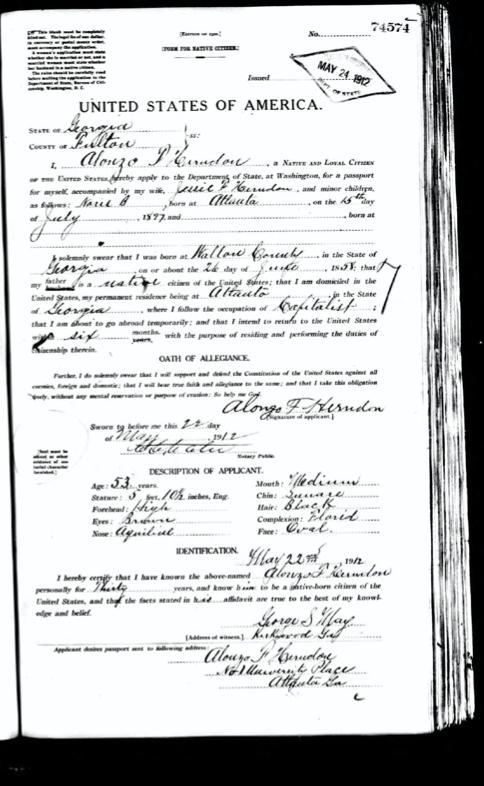 [EDITION OF 1901.]
No. 74574
[FORM FOR NATIVE CITIZEN.]
Issued
MAY 24 1912
DEPT. OF STATE
UNITED STATES OF AMERICA.
STATE OF Georgia
COUNTY OF Fulton } ss:
I, Alonzo F Herndon, a NATIVE AND LOYAL CITIZEN
OF THE UNITED STATES, hereby apply to the Department of State, at Washington, for a passport
for myself, accompanied by my wife, Jessie F Herndon, and minor children,
as follows: Norris B, born at Atlanta, on the 15th day
of July, 1897, and , born at
I solemnly swear that I was born at Walton County, in the State of
Georgia, on or about the 26 day of June, 1858; that
my father is a native citizen of the United States; that I am domiciled in the
United States, my permanent residence being at Atlanta, in the State
of Georgia, where I follow the occupation of Capitalist;
that I am about to go abroad temporarily; and that I intend to return to the United States
within six months, years, with the purpose of residing and performing the duties of
citizenship therein.
OATH OF ALLEGIANCE.
Further, I do solemnly swear that I will support and defend the Constitution of the United States against all
enemies, foreign and domestic; that I will bear true faith and allegiance to the same; and that I take this obligation
freely, without any mental reservation or purpose of evasion: So help me God.
Alonzo F Herndon
[Signature of applicant.]
Sworn to before me this 22 day
of May, 1912
Notary Public.
DESCRIPTION OF APPLICANT.
Age: 53 years. Mouth: Medium
Stature: 5 feet, 10½ inches, Eng. Chin: Square
Forehead: High Hair: Black
Eyes: Brown Complexion: Florid
Nose: Aquiline Face: Oval
IDENTIFICATION.
May 22nd, 1912
I hereby certify that I have known the above-named Alonzo F Herndon
personally for Thirty years, and know him to be a native-born citizen of the
United States, and that the facts stated in his affidavit are true to the best of my knowl-
edge and belief.
George S May
[Address of witness.] Kirkwood Ga
Applicant desires passport sent to following address:
Alonzo F Herndon
No 1 University Place
Atlanta Ga